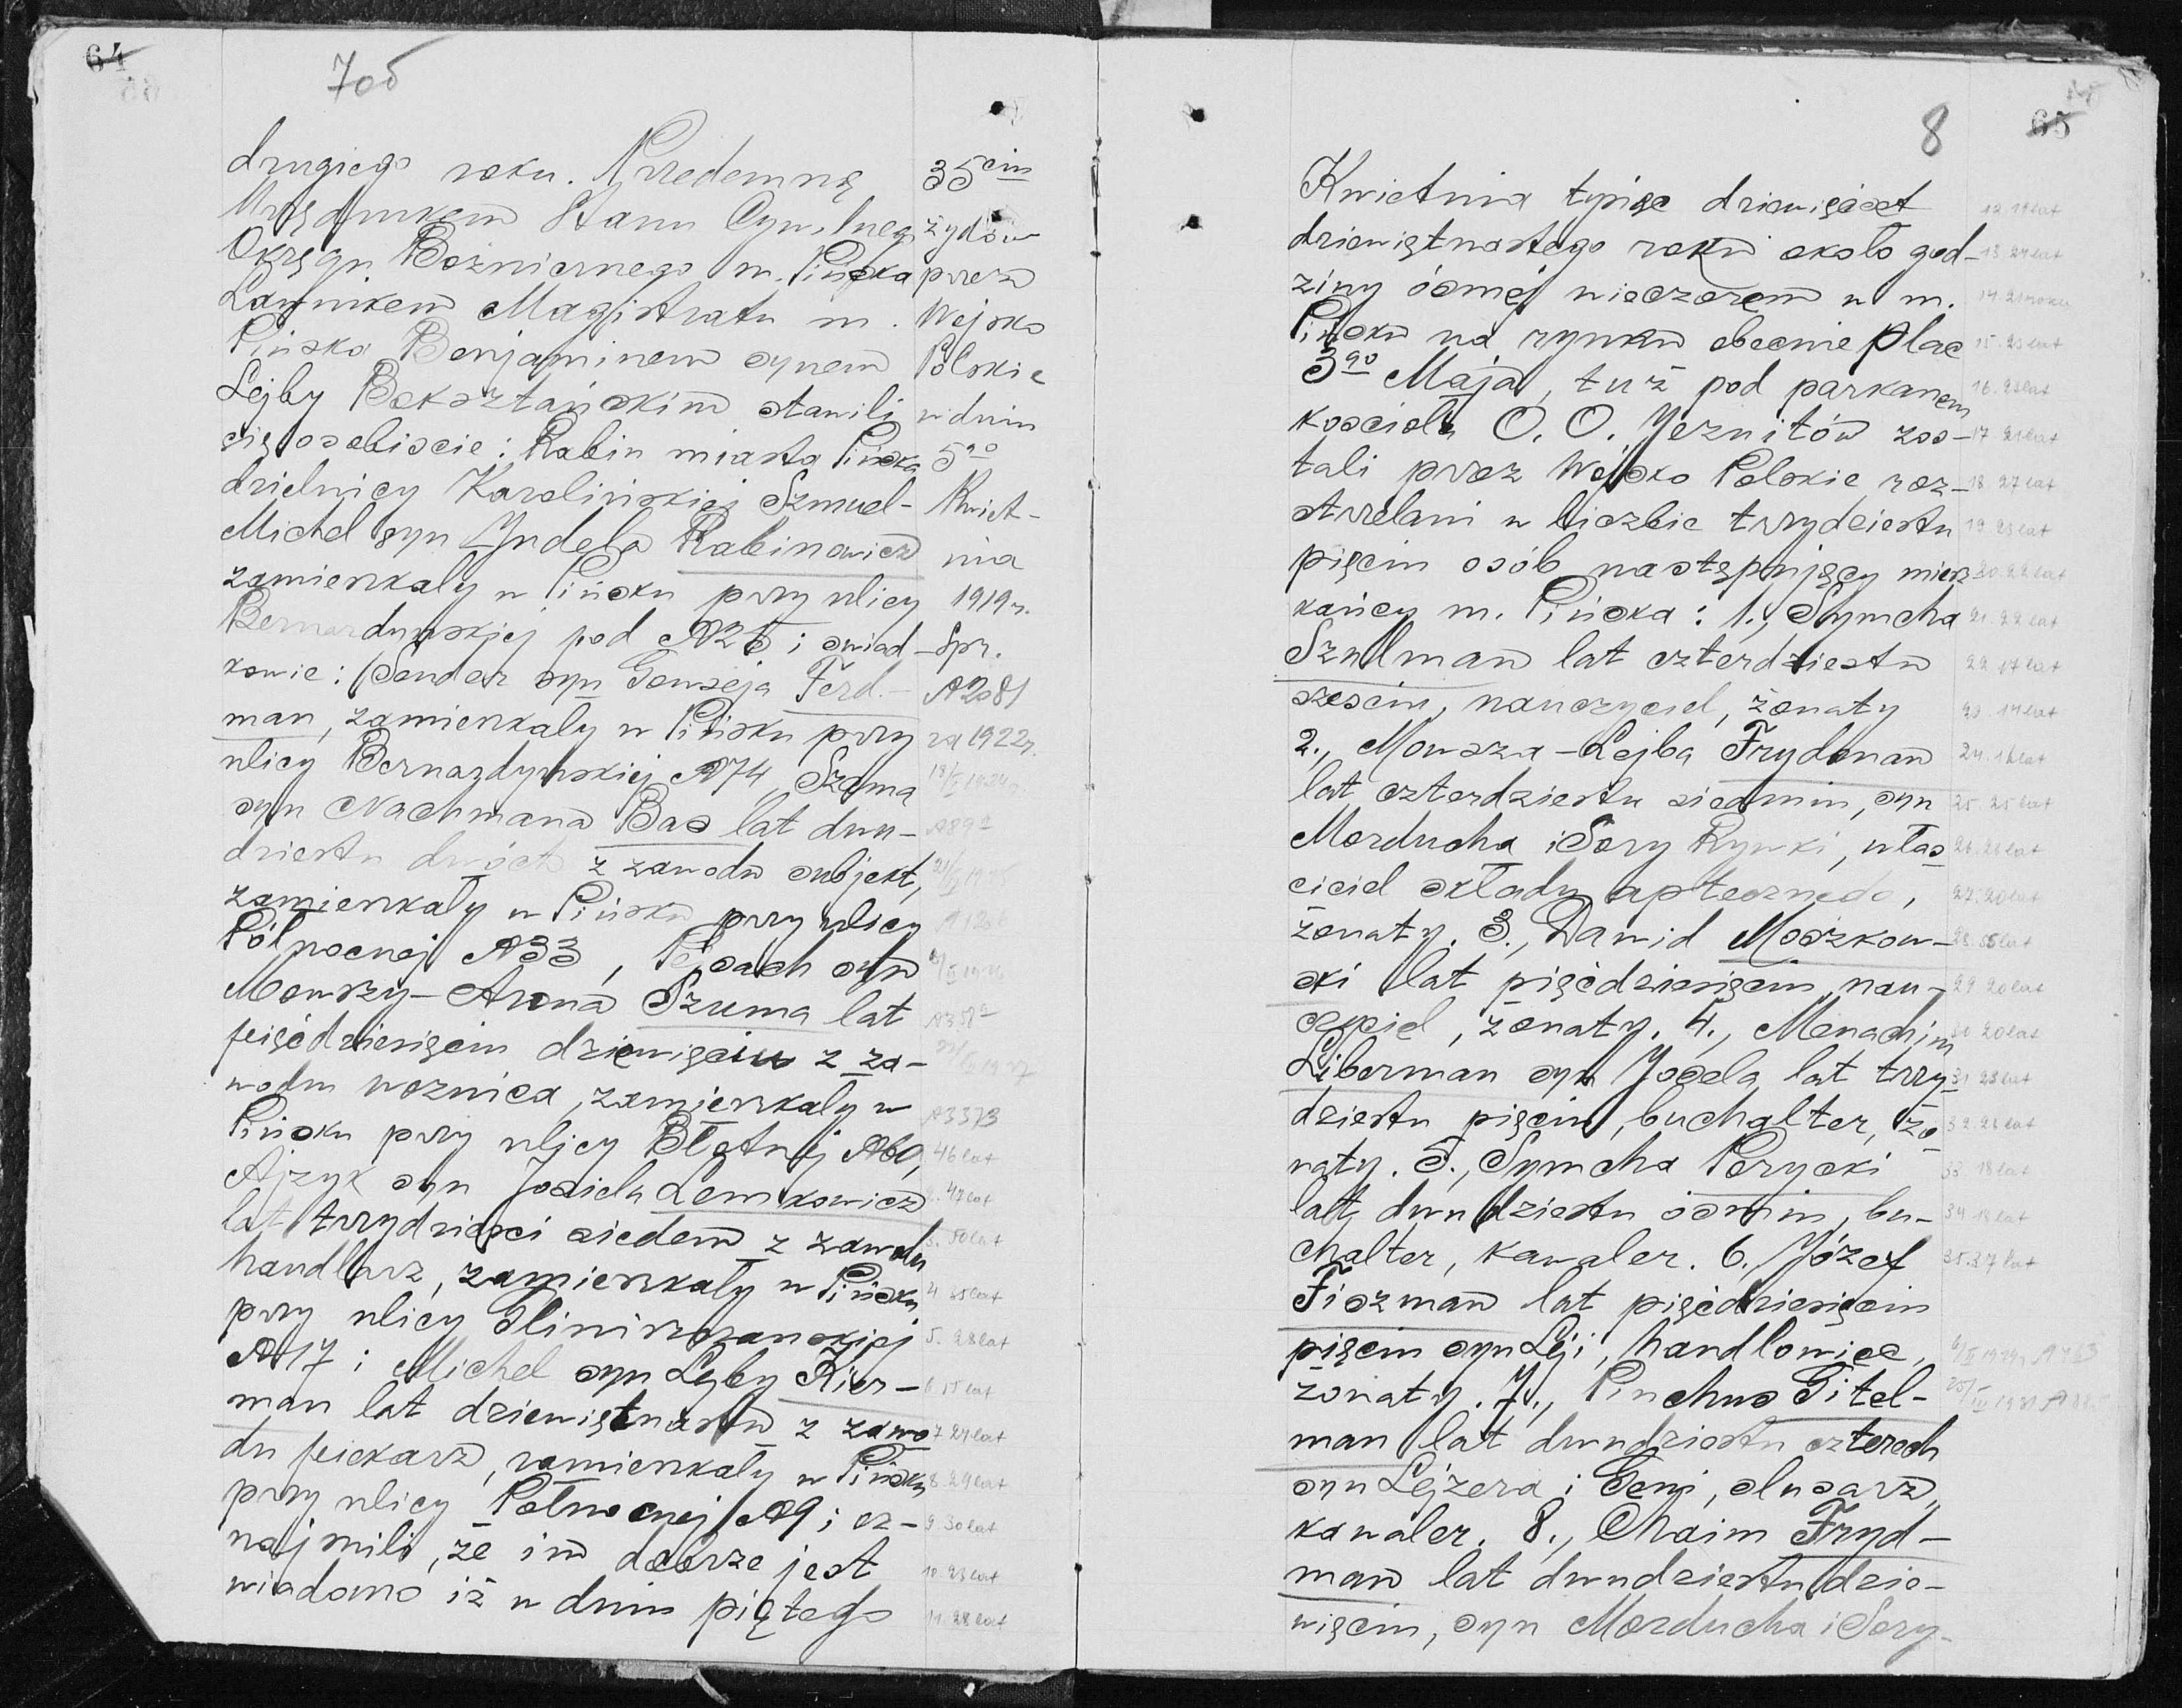 64
7об
drugiego roku. Przedemną
Urzędnikem Stanu Cywilnego
Okręgu Bóżniernego m. Pińska
Ławnikem Magistratu m.
Pińska Benjaminem synem
Lejby Boksztańskim stawili
się osobiscie: Rabin miasta Pińska
dzielnicy Karolińskiej Szmuel-
Michel syn Yudela Rabinowicz
zamieszkały w Pińsku przy ulicy
Bernardyńskiej pod №25 i swiad-
kowie: Sender syn Gowseja Ferd-
man, zamieszkały w Pińsku przy
ulicy Bernardyńskiej №74, Szama
syn Nachmana Bas lat dwu-
dziestu dwóch z zawodu subjekt,
zamieszkały w Pińsku przy ulicy
Pólnocnej №33, Pejsach syn
Mowszy-Arona Szuma lat
pięćdziesięciu dziewięciu z za-
wodu woznica, zamieszkały w
Pińsku przy ulicy Błotnej №60,
Ajzyk syn Josiela Lewkowicz
lat trzydzieści siedem z zawodu
handlarz, zamieszkały w Pińsku
przy ulicy
№17 i Michel syn Lejby Kier-
man lat dziewiętnastu z zawo
du piekarz, zamieszkały w Pińsku
przy ulicy Połnocnej №9 i oz-
najmili, że im dobrze jest
wiadomo iż w dniu piątego
35ciu
żydów
przez
Wojsko
Polskie
w dniu
5go
Kwiet-
nia
1919 r.
Spr.
№2081
za 1922 r.
№3373
46 lat
2. 47 lat
3. 50 lat
4 35 lat
5. 28 lat
6 55 lat
7 24 lat
8. 29 lat
9 30 lat
10. 23 lat
11. 28 lat
8
65
Kwietnia tysiąc dziewięćset
dziewiętnastego roku około god-
ziny ósmej wieczorem w m.
Pińsku na rynku obecnie plac
3go Maja, tuż pod parkanem
kosciola O. O. Jezuitów zos-
tali przez Wojsko Polskie roz-
strzelani w liczbie trzydziestu
pięciu osób następujący miesz-
kańcy m. Pińska: 1., Symcha
Szulman lat czterdziestu
szesciu, nauczyciel, żonaty
2., Mowsza-Lejba Frydman
lat czterdziestu siedmiu, syn
Morducha i Sory Rywki, własc
ciciel składu aptecznego,
żonaty. 3., Dawid Moszkow-
ski lat pięćdziesięciu, nau-
czyciel, żonaty. 4., Menachim
Liberman syn Josela lat trzy-
dziestu pięciu, buchalter, żo
naty. 5., Symcha Perycki
lat dwudziestu ósmiu, bu-
chalter, kawaler. 6. Józef
Fiszman lat pięćdziesięciu
pięciu syn Leji, handlowiec,
żonaty. 7., Pinchus Gitel-
man lat dwudziestu czterech
syn Lejzera i Geni, slusarz,
kawaler. 8., Chaim Fryd-
man lat dwudziestu dzie-
więciu, syn Morducha i Sory-
12. 19 lat
13. 24 lat
14. 21 roku
15. 23 lat
16. 23 lat
17. 21 lat
18. 27 lat
19. 23 lat
20. 22 lat
21. 22 lat
22 17 lat
23. 17 lat
24. 16 lat
25. 25 lat
26. 26 lat
27. 20 lat
28. 55 lat
29 20 lat
30 20 lat
31 23 lat
32. 23 lat
33 18 lat
34 18 lat
35. 37 lat